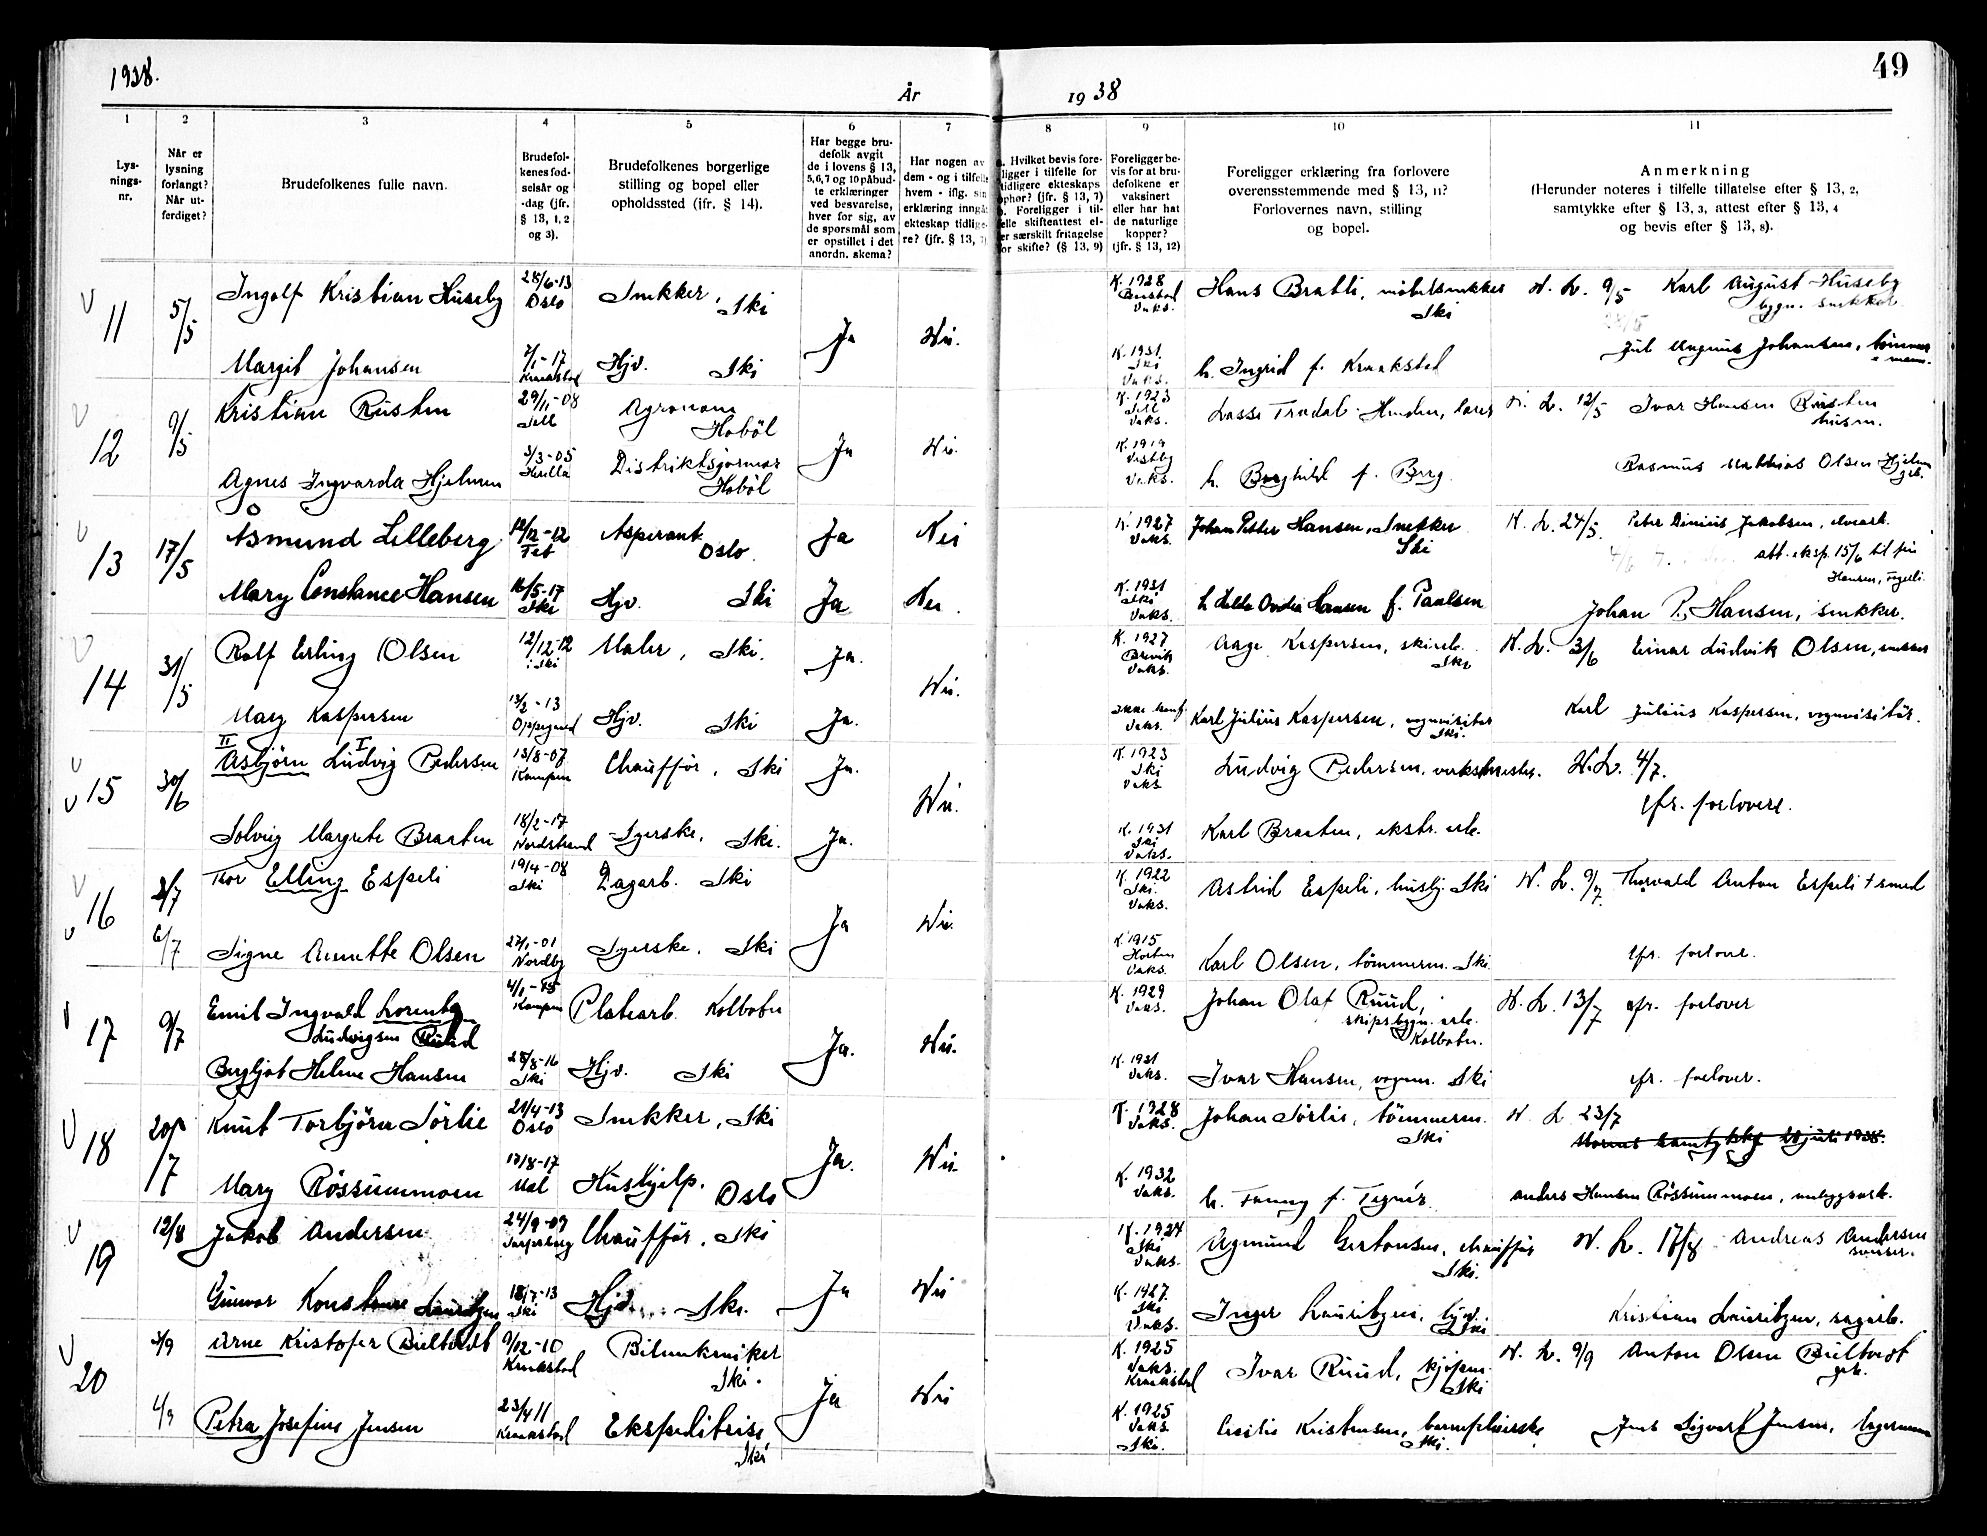 1938.
År
1938
49
1
2
3
4
5
6
7
8
9
10
11
Lys-
nings-
nr.
Når er
lysning
forlangt?
Når ut-
ferdiget?
Brudefolkenes fulle navn.
Brudefol-
kenes fød-
selsår og
-dag (jfr.
§ 13, 1, 2
og 3).
Brudefolkenes borgerlige
stilling og bopel eller
opholdssted (jfr. § 14).
Har begge bru-
defolk avgit
de i lovens § 13,
5, 6, 7 og 10 påbud-
te erklæringer
ved besvarelse,
hver for sig, av
de spørsmål som
er opstillet i det
anordn. skema?
Har nogen av
dem - og i tilfelle
hvem - iflg. sin
erklæring inngå
ekteskap tidlige-
re? (jfr. § 13,
a. Hvilket bevis fore-
ligger i tilfelle for
tidligere ekteskaps
ophør? (jfr. § 13, 7)
b. Foreligger i til-
elle skifteattest el-
er særskilt fritagelse
for skifte? (§ 13, 9)
Foreligger be-
vis for at bru-
defolkene er
vaksinert
eller har hat
de naturlige
kopper?
(jfr. § 13, 12)
Foreligger erklæring fra forlovere
overensstemmende med § 13, 11?
Forlovernes navn, stilling
og bopel.
Anmerkning
(Herunder noteres i tilfelle tillatelse efter § 13, 2,
samtykke efter § 13, 3, attest efter § 13, 4
og bevis efter § 13, 8).
11
5/5
Ingolf Kristian Huseby
28/6-13
Oslo
Snekker, Ski
Ja
Nei.
K. 1928
Vaks.
Hans Bratli, møbelsnekker
Ski
N. L. 9/5
Karl August Huseby
bygn. snekker
Margit Johansen
7/1-17
Kraakstad
Hjv. Ski
K. 1931
Ski
Vaks.
h. Ingrid f. Kraakstad
Magnus Johansen, tømmer
mann.
12
9/5
Kristian Rusten
29/11-08
Agronom
Hobøl
Ja
Nei.
K. 1923
Vaks.
N. L. 12/5
Ivar Hansen Rusten
husm.
Agnes Ingvarda Hjelmen
3/3-05
Distriktsjormor
Hobøl
K. 1919
Vestby
Vaks.
h. Borghild f. Berg.
Rasmus Mathias Olsen Hjelm
13
17/5
Åsmund Lilleberg
12/12-12
Aspirant
Oslo.
Ja
Nei
K. 1927
Vaks.
Johan Petter Hansen, Snekker
Ski
N. L. 24/5
Jakobsen,
att. eksp. 15/6 til frk
Hansen,
Mary Constance Hansen
16/5-17
Ski
Hjv. Ski
Ja
Nei.
K. 1931
Ski
Vaks.
Hansen f. Paulsen
Johan P. Hansen, snekker.
14
31/5
Rolf Erling Olsen
12/12-12
i Ski
Maler, Ski.
Ja.
Nei.
K. 1927
Brevik
Vaks.
Aage Kaspersen,
Ski
N. L. 3/6
Einar Ludvik Olsen,
Mary Kaspersen
13/2-13
Oppegaard
Hjv. Ski
Ja.
Ikke konf.
Vaks.
Karl Julius Kaspersen, vognvisitør
Ski.
Karl Julius Kaspersen, vognvisitør.
15
30/6
II I
Asbjørn Ludvig Pedersen
13/8-07
Kampen
Chauffør, Ski
Ja.
Nei.
K. 1923
Ski
Vaks
Ludvig Pedersen, verksmester.
N. L. 4/7.
cfr. forlovere.
Solveig Margrete Braaten
18/2-17
Nordstrand
Syerske, Ski.
Ja.
K. 1931
Ski
Vaks.
Karl Braaten, ekstr. arb.
16
2/7
6/7
Thor Elling Espeli
19/4-08
Ski
Dagarb. Ski
Ja
Nei.
K. 1922
Ski.
Vaks.
Astrid Espeli, husbj. Ski
N. L. 9/7.
Thorvald Anton Espeli † smed
Signe Annette Olsen
27/1-01
Nordby
Syerske. Ski
K. 1915
Horten
Vaks.
Karl Olsen, tømmerm. Ski.
cfr. forlover.
17
9/7
Emil Ingvald Lorentz
Ludvigsen Ruud
Kampen
Platearb. Kolbotn
Ja.
Nei.
K. 1929
Vaks.
Johan Olaf Ruud,
skipsbygn. arb.
Kolbotn.
N. L. 13/7
cfr. forlover
Bergljot Helene Hansen
28/8-16
Ski
Hjv. Ski
K. 1931
Vaks.
Ivar Hansen, vognm. Ski
cfr. forlover.
18
20/7
Knut Torbjørn Sørlie
21/4-13
Oslo
Snekker, Ski
Ja.
Nei.
K. 1928
Vaks.
Johan Sørlie, tømmerm.
Ski
N. L. 23/7
Mary Røssummoen
17/8-17
Hushjelp. Oslo
K. 1932
Vaks.
h. Fanny f. Tegnér.
Anders Hansen Røssummoen, anleggsarb.
19
12/8
Jakob Andersen
24/9-09
Sarpsborg
Chauffør. Ski
Ja
Nei
K. 1924
Ski
Vaks.
Agmund Gertonsen, chauffør
Ski.
N. L. 17/8
Andreas Andersen
Gunvor Konstanse Lauritzen
18/7-13
Ski
Hjv. Ski.
K. 1927.
Ski
Vaks.
Inger Lauritzen, hjv.
Ski
Kristian Lauritzen, sagarb.
20
3/9
4/9
Arne Kristofer Bultvedt
9/12-10
Kraakstad
Bilmekaniker
Ski.
Ja
Nei
K. 1925
Vaks.
Kraakstad
Ivar Ruud,
Ski
N. L. 9/9
Anton Olsen Bultvedt
Petra Josefine Jensen
23/4 11
Kraakstad
Ekspeditrise
Ski
K. 1925
Vaks.
Ski.
Cecilie Kristensen, barnepleierske
Ski.
Jens Sigvart Jensen, lagermann